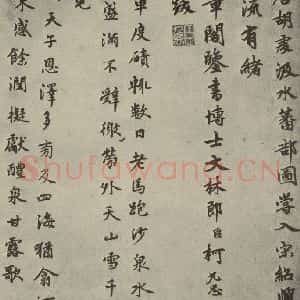 胡虔汲水蕃部圖嘗入宗紹
流有緒
章閣鑒書博士文林郎臣柯九思
跋
車度磧數日老馬跑沙泉水
盈滿不辭微勞外天山雪千
天子恩澤多四海猶翕
感餘潤擬獻醴泉甘露歌
Shufawang.CN